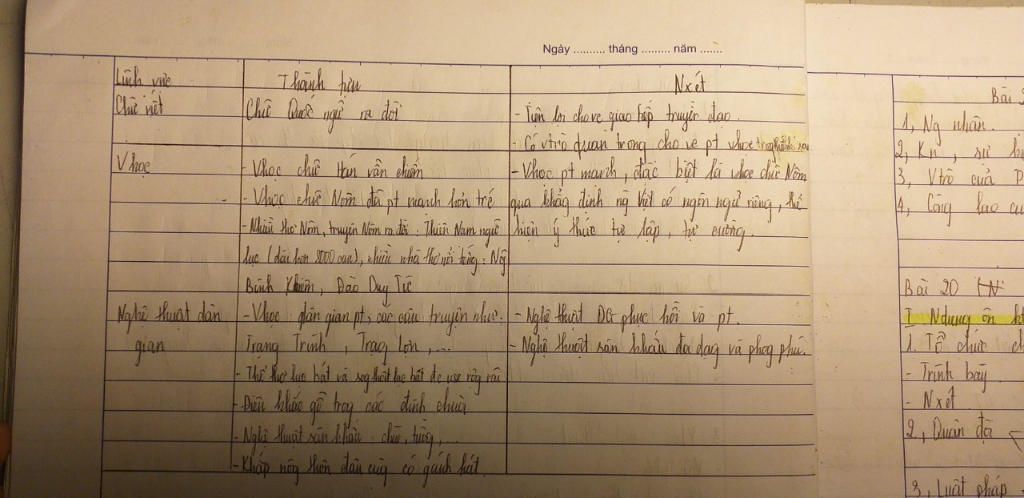 Ngày .......... tháng ......... năm .......
Lĩnh vực
Thành tựu
Nxét
Chữ viết
Chữ Quốc ngữ ra đời
- Tiện lợi cho vc giao tiếp truyền đạo.
- Có vtrò quan trọng cho vc pt vhọc
Vhọc
- Vhọc chữ Hán vẫn chiếm
- Vhọc chữ Nôm đã pt mạnh hơn trc
- Nhiều thơ Nôm, truyện Nôm ra đời: Thiên Nam ngữ
lục (dài hơn 8000 câu), nhiều nhà thơ nổi tiếng: Ng
Bỉnh Khiêm, Đào Duy Từ
- Vhọc pt mạnh, đặc biệt là vhọc chữ Nôm
qua khẳg định ng Việt có ngôn ngữ riêng, thể
hiện ý thức tự lập, tự cường.
Nghệ thuật dân
gian
- Vhọc dân gian pt, các câu truyện như:
Trạng Trình, Trạg Lợn, ...
- Thể thơ lục bát và sog thất lục bát đc sử rộg rãi
- Điêu khắc gỗ trog các đình chùa
- Nghệ thuật sân khấu: chèo, tuồng, ...
- Khắp nông thôn đâu cũg có gánh hát.
- Nghệ thuật DG phục hồi và pt.
- Nghệ thuật sân khấu đa dạg và phog phú.
Bài
1, Ng nhân.
2, Kn, sự
3, Vtrò của
4, Công lao
Bài 20
I Ndung ôn
1. Tổ chức
- Trình bày
- Nxét
2, Quân đội
3, Luật pháp